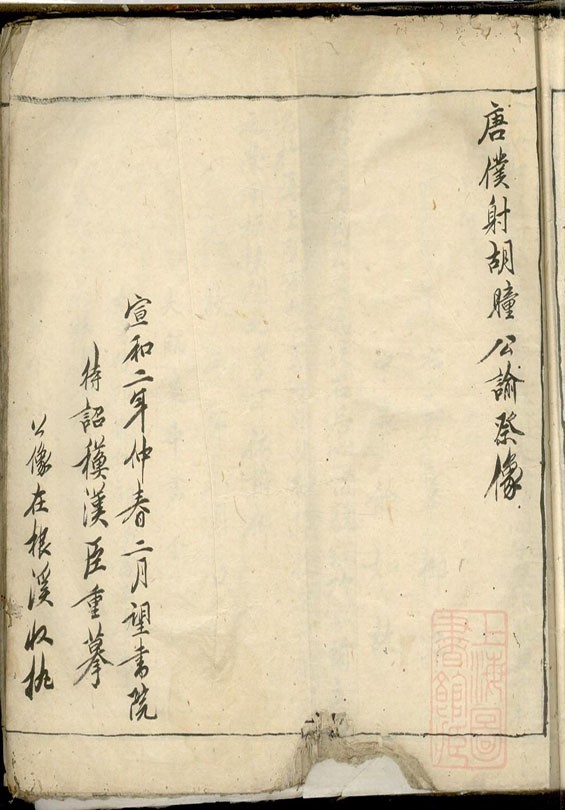 唐僕射胡瞳公諭祭像
宣和二年仲春二月望書院
待詔漢臣重摹
公像在根溪收执
上海圖
書館藏